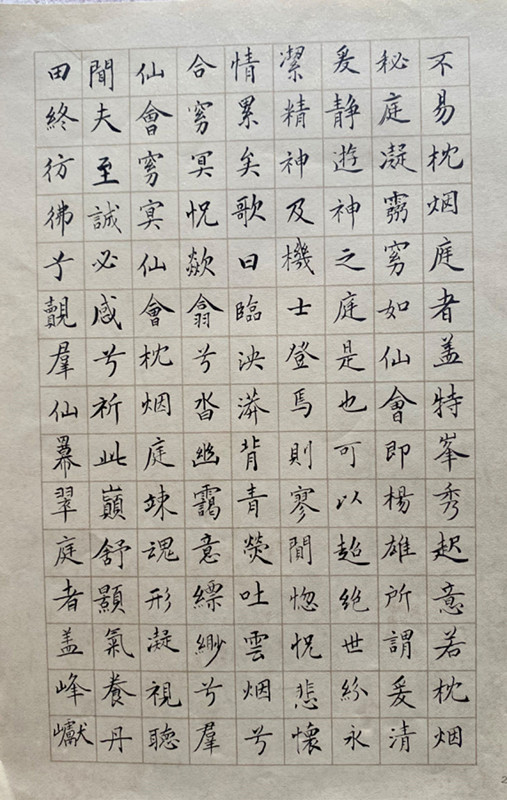 不易枕烟庭者盖特峯秀起意若枕烟
秘庭凝霛窅如仙會即楊雄所謂爰清
爰静遊神之庭是也可以超絶世紛永
潔精神及機士登焉則寥閒惚怳悲懷
情累矣歌曰臨泱漭背青熒吐雲烟兮
合窅冥怳欻翕兮沓幽靄意縹緲兮羣
仙會窅冥仙會枕烟庭竦魂形凝視聴
聞夫至誠必感兮祈此巔舒顥氣養丹
田終彷彿兮覯羣仙羃翠庭者盖峰巘
2